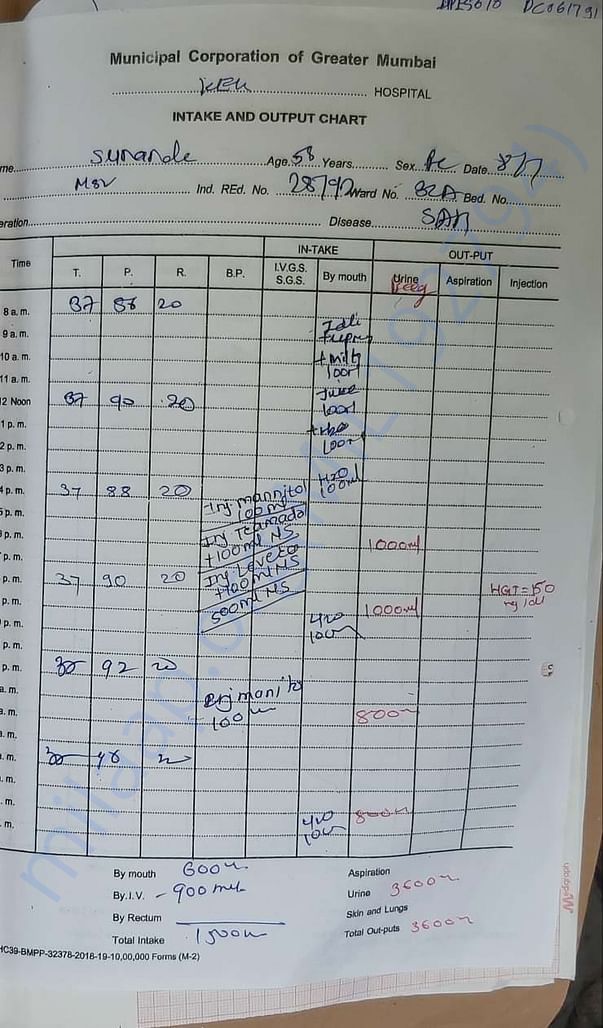 DC061791
Municipal Corporation of Greater Mumbai
KEM HOSPITAL
INTAKE AND OUTPUT CHART
me Sunanda Age 58 Years Sex Date 8/7
MSV Ind. REd. No. 28792 Ward No. 32A Bed. No.
eration Disease SAH
IN-TAKE OUT-PUT
Time T. P. R. B.P. I.V.G.S. S.G.S. By mouth Urine Aspiration Injection
8 a. m. 37 86 20
9 a. m. Idli
10 a. m. + milk
11 a. m. 100ml
2 Noon 37 90 20 Juice 100ml
1 p. m. + H2O
2 p. m. 100ml
3 p. m.
4 p. m. 37 88 20 Inj mannitol 100ml H2O 100ml
5 p. m. Inj Tramadol
p. m. +100ml NS 1000ml
p. m. Inj Leveto
p. m. 37 90 20 +100ml NS HGT = 150 mg/dl
p. m. 500ml NS 1000ml
p. m. H2O
p. m. 100
p. m. 92 20
a. m.
a. m. 100 800
a. m.
a. m.
. m.
. m.
. m. H2O 100 800
By mouth 600
By.I.V. - 900 ml
By Rectum
Total Intake 1500
Aspiration
Urine 3600
Skin and Lungs
Total Out-puts 3600
HC39-BMPP-32378-2018-19-10,00,000 Forms (M-2)